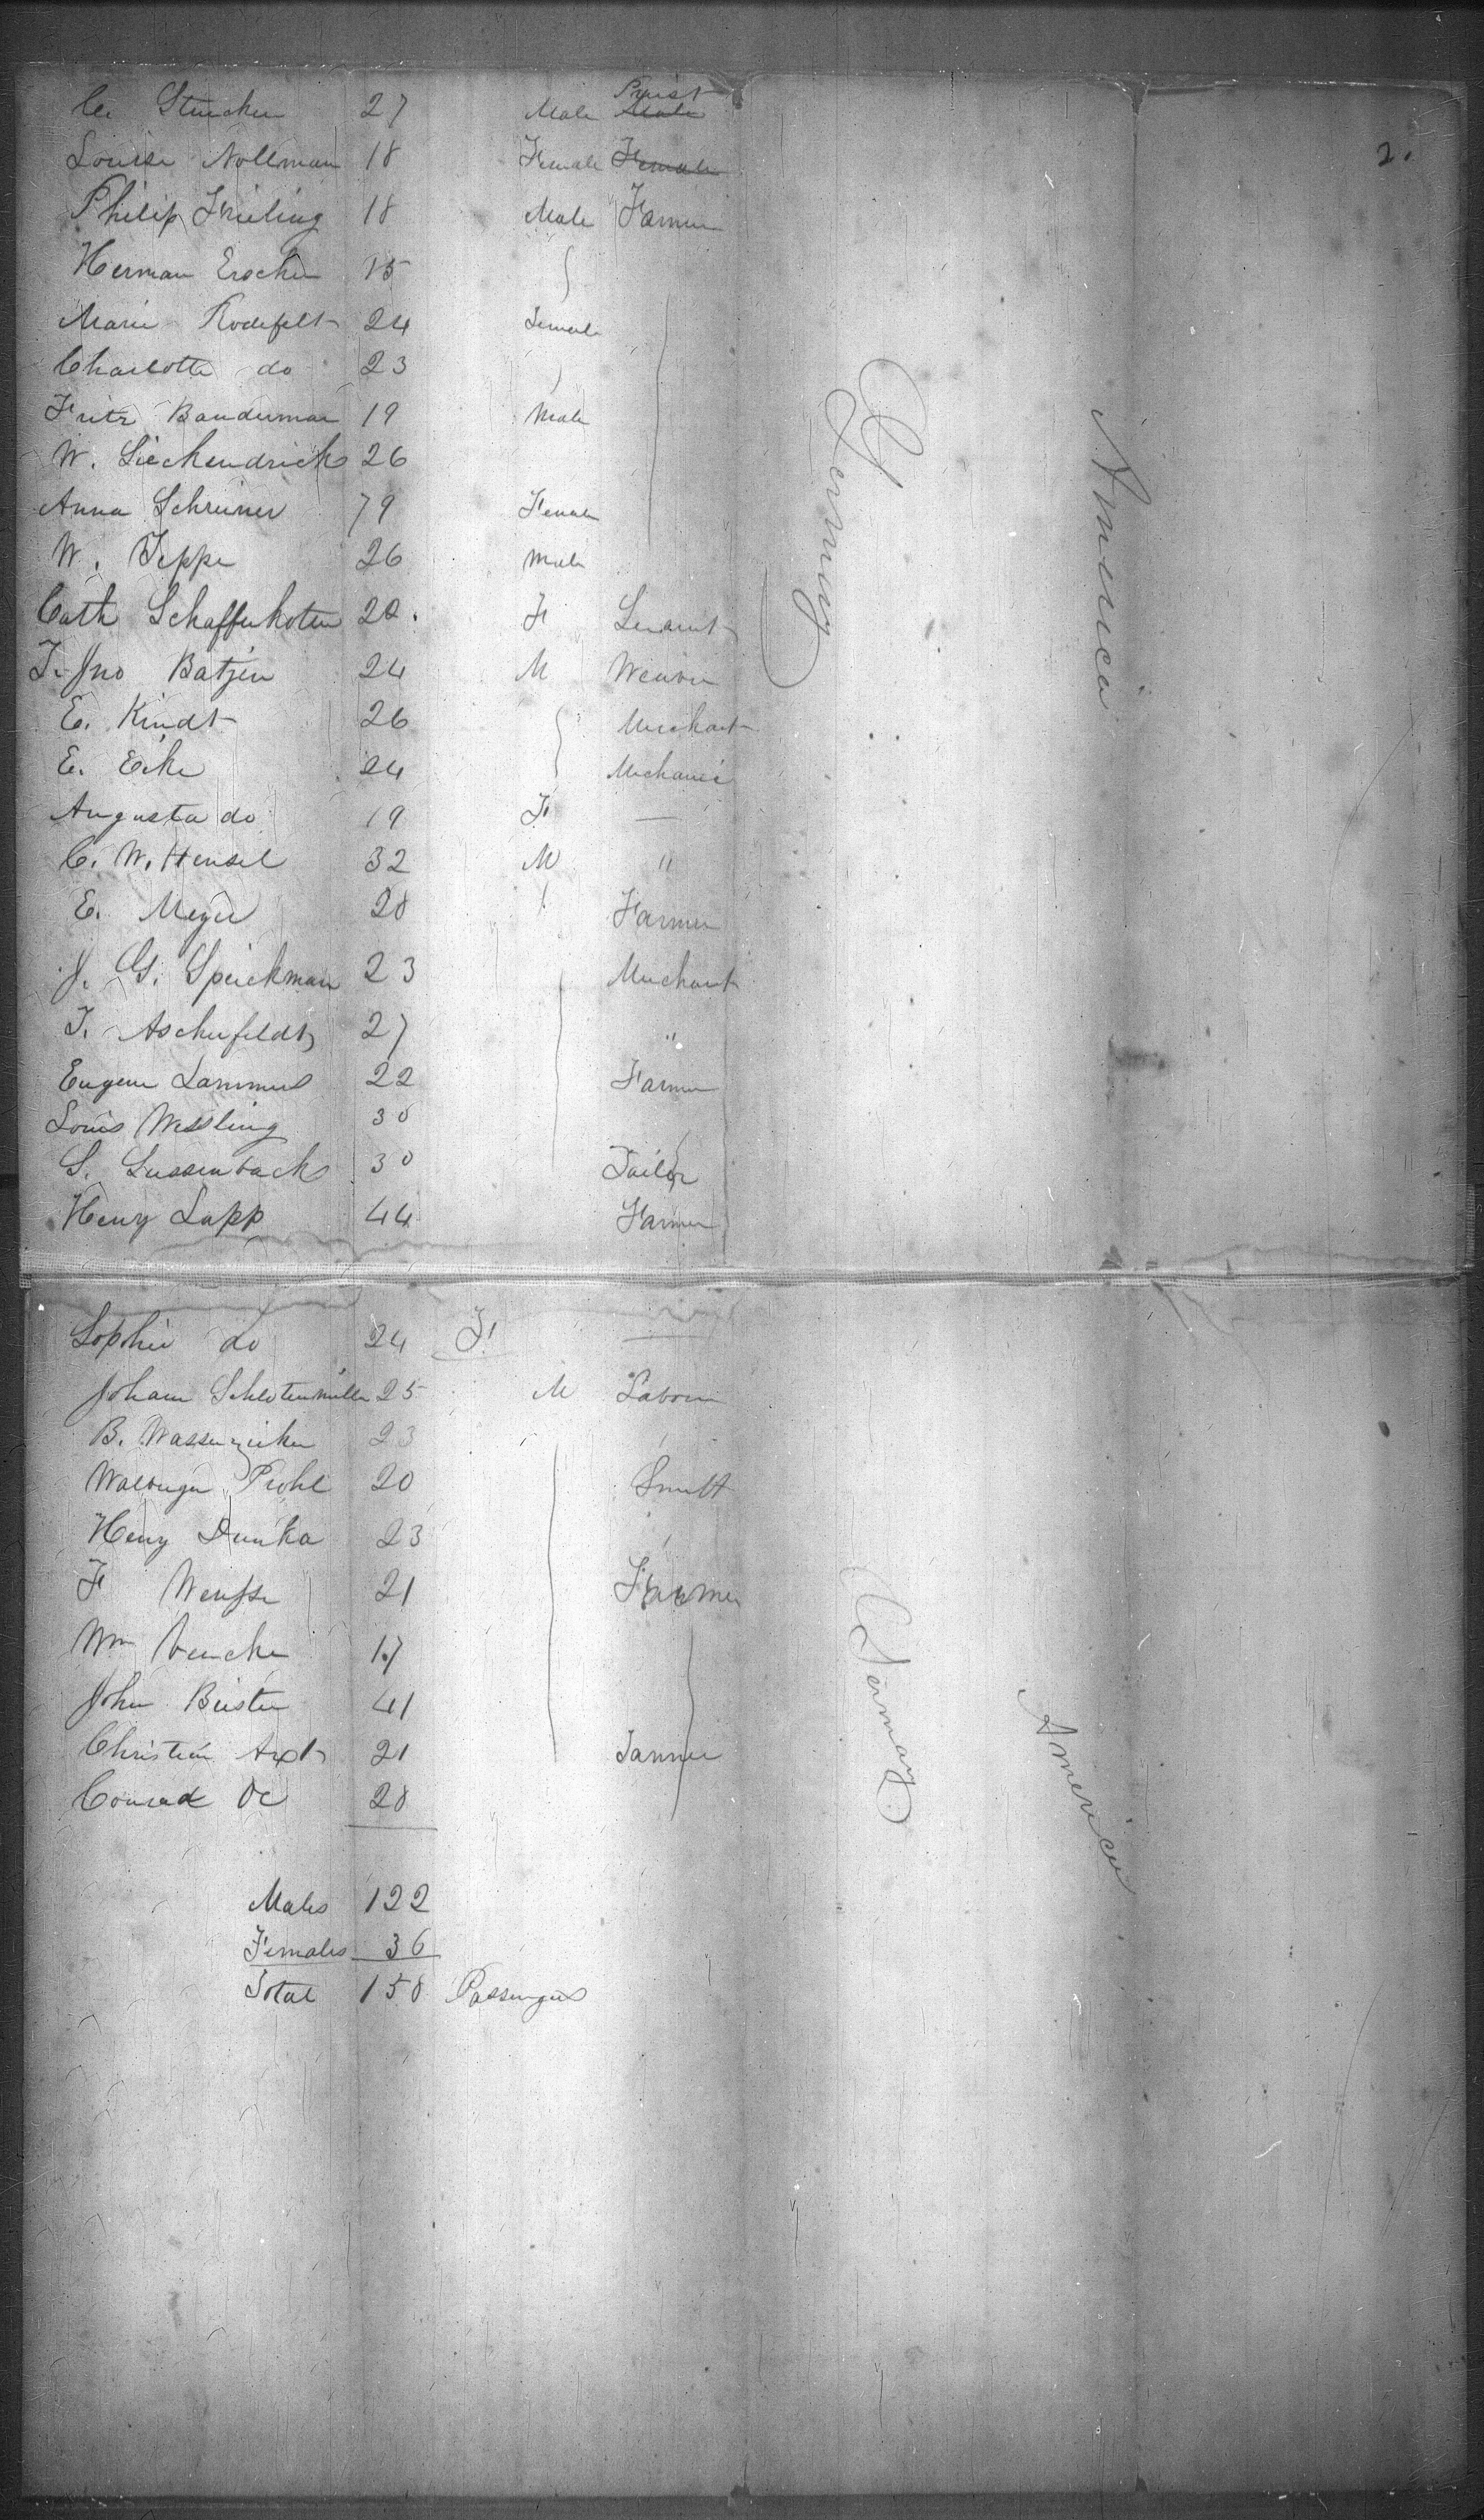 2.
C. Stucken 27 Male Priest Male
Louise Nollman 18 Female Female
Philip Frieling 18 Male Farmer
Herman Erocken 15
Marie Rodefelt 24 Female
Charlotte do 23
Fritz Banderman 19 Male
W. Sieckendrick 26
Anna Schreiner 79 Female
W. Teppe 26 Male
Cath Schaffenkoten 22. F Servant
T. Jno Batjen 24 M Weaver
E. Kindt 26 Merchant
E. Eike 24 Mechanic
Augusta do 19 F —
C. W. Hensel 32 M "
E. Meyer 28 Farmer
J. G. Speickman 23 Merchant
T. Aschenfeldt 27 "
Eugene Lammers 22 Farmer
Louis Wessling 30
S. Sussenback 30 Tailor
Henry Lapp 44 Farmer
Germany
America
Sophie do 24 F —
Joham Schlotenmuller 25 M Laborer
B. Wassenzieker 23
Walburga Prohl 20 Smith
Henry Dunka 23
F Wersse 21 Farmer
Wm 17
John Beister 41
Christian Axt 21 Tanner
Conrad Oc 28
Germany
America
Males 122
Females 36
Total 158 Passengers